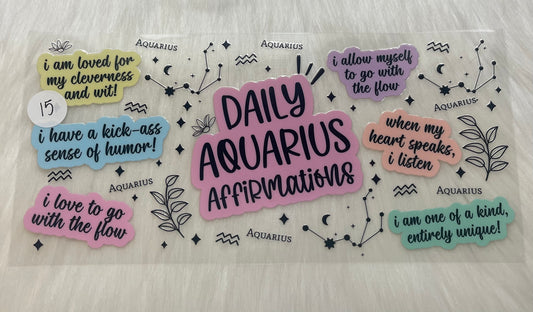 i am loved for
my cleverness
and wit!
15
i have a kick-ass
sense of humor!
i love to go
with the flow
Aquarius
Aquarius
DAILY
AQUARIUS
AFFIRMATIONS
Aquarius
Aquarius
i allow myself
to go with
the flow
Aquarius
when my
heart speaks,
i listen
Aquarius
i am one of a kind,
entirely unique!